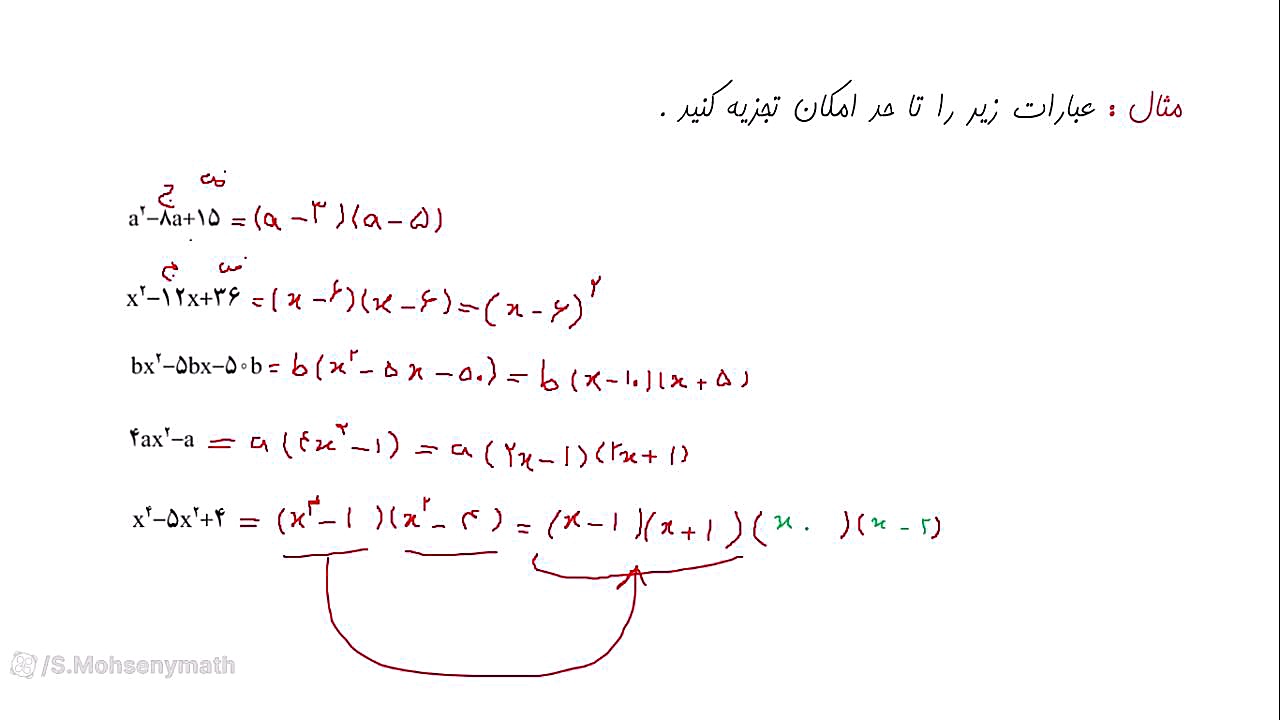 مثال : عبارات زیر را تا حد امکان تجزیه کنید .
ج ضـ
a²−۸a+۱۵ = (a − ۳)(a − ۵)
ج ضـ
x²−۱۲x+۳۶ = (x − ۶)(x − ۶) = (x − ۶)²
bx²−۵bx−۵۰b = b(x² − ۵x − ۵۰) = b(x − ۱۰)(x + ۵)
۴ax²−a = a(۴x² − ۱) = a(۲x − ۱)(۲x + ۱)
x⁴−۵x²+۴ = (x² − ۱)(x² − ۴) = (x − ۱)(x + ۱)(x . )(x − ۲)
/S.Mohsenymath